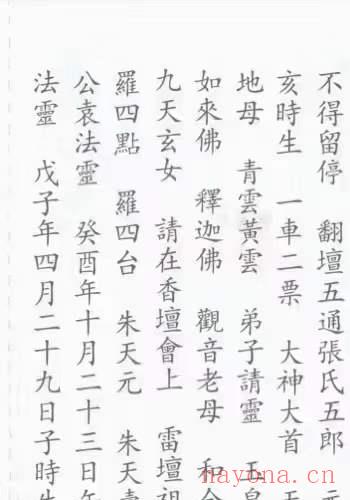 不得留停 翻壇五通張氏五郎
亥時生 一車二票 大神大首
地母 青雲黃雲 弟子請靈 玉皇
如來佛 釋迦佛 觀音老母 和
九天玄女 請在香壇會上 雷壇祖
羅四點 羅四台 朱天元 朱天
公袁法靈 癸酉年十月二十三日午
法靈 戊子年四月二十九日子時生
nayona.cn